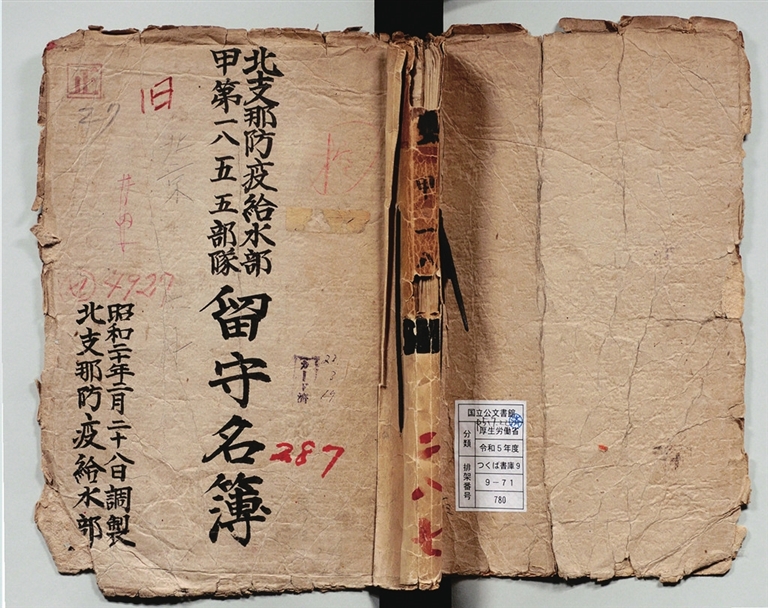 北支那防疫給水部
甲第一八五五部隊
留守名簿
昭和二十年二月二十八日調製
北支那防疫給水部
旧
27
4927
287
甲
一八
二八七
国立公文書館
分類
厚生労働省
令和5年度
排架番号
つくば書庫9
9-71
780